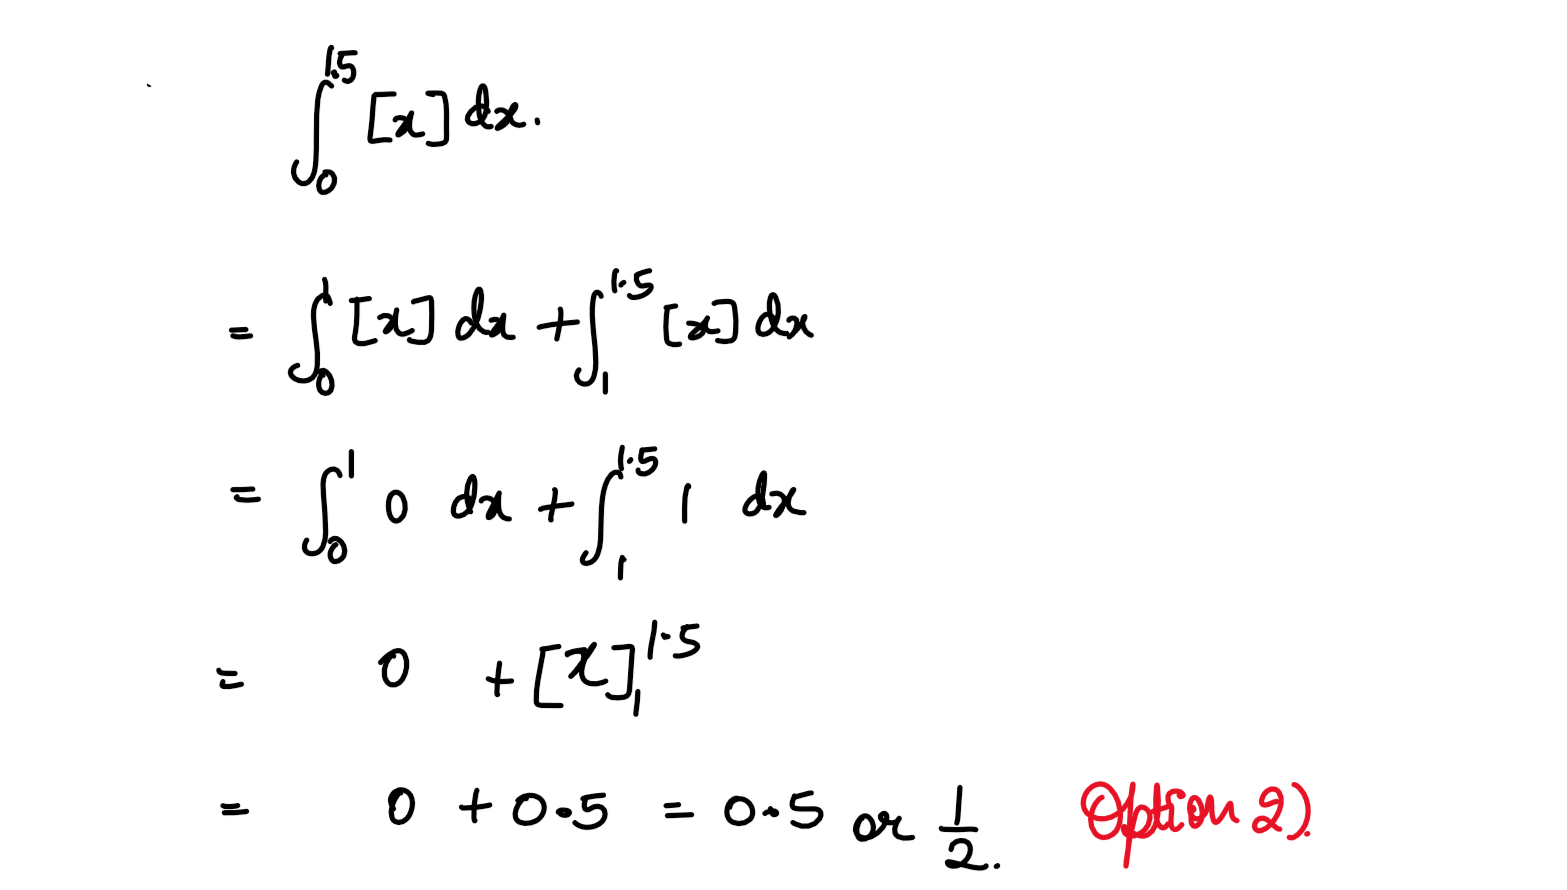 ∫₀^1.5 [x] dx.
= ∫₀^1 [x] dx + ∫₁^1.5 [x] dx
= ∫₀^1 0 dx + ∫₁^1.5 1 dx
= 0 + [x]₁^1.5
= 0 + 0.5 = 0.5 or 1/2. Option 2).